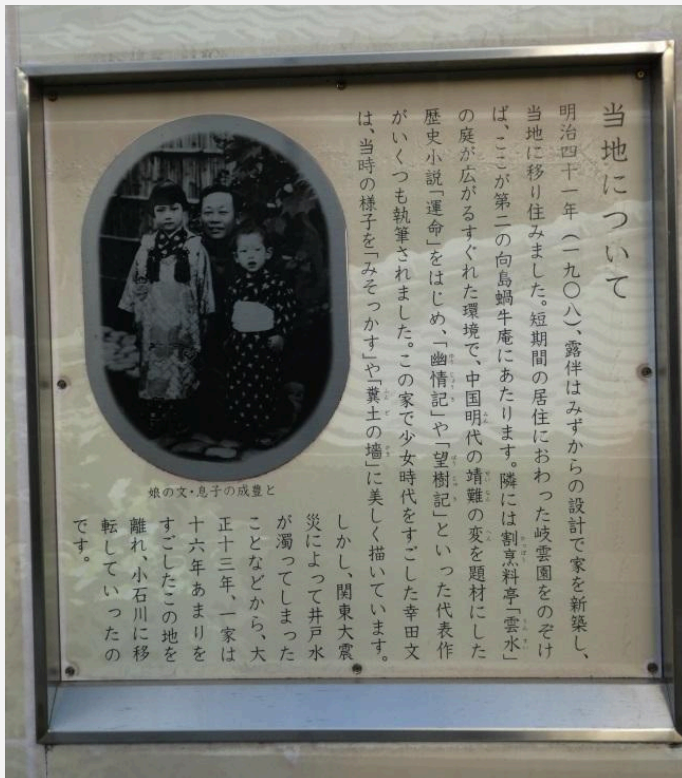 当地について
明治四十一年（一九〇八）、露伴はみずからの設計で家を新築し、
当地に移り住みました。短期間の居住におわった岐雲園をのぞけ
ば、ここが第二の向島蝸牛庵にあたります。隣には割烹料亭「雲水」
の庭が広がるすぐれた環境で、中国明代の靖難の変を題材にした
歴史小説「運命」をはじめ、「幽情記」や「望樹記」といった代表作
がいくつも執筆されました。この家で少女時代をすごした幸田文
は、当時の様子を「みそっかす」や「糞土の墻」に美しく描いています。
しかし、関東大震
災によって井戸水
が濁ってしまった
ことなどから、大
正十三年、一家は
十六年あまりを
すごしたこの地を
離れ、小石川に移
転していったの
です。
娘の文・息子の成豊と